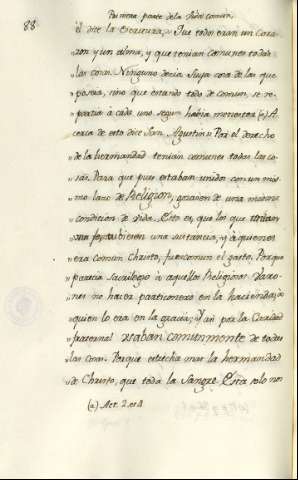 88 Primera parte de la vida comun.
él dice la Escritura, Que todos eran un Cora-
zon y un alma, y que tenian comunes todas
las cosas. Ninguno decia suya cosa de las que
poseia, sino que estando todo de comun, se re-
partia à cada uno segun habia menester (a) A-
cerca de esto dice San Agustin: Por el derecho
de la hermandad tenian comunes todas las co-
sas. Para que pues estaban unidos con un mis-
mo lazo de Religion, gozasen de una misma
condicion de vida. Esto es, que los que
tubiesen una sustancia, y à quienes
era comun Christo, fuese comun el gasto. Porque
parecia sacrilegio à aquellos Religiosos Varo-
nes no haver partionero en la hacienda, à
quien lo era en la gracia; Y asi por la Caridad
fraternal usaban comunmente de todas
las cosas. Porque estrecha mas la hermandad
de Christo, que toda la Sangre. Esta solo nos
(a) Act. 2. et 4.